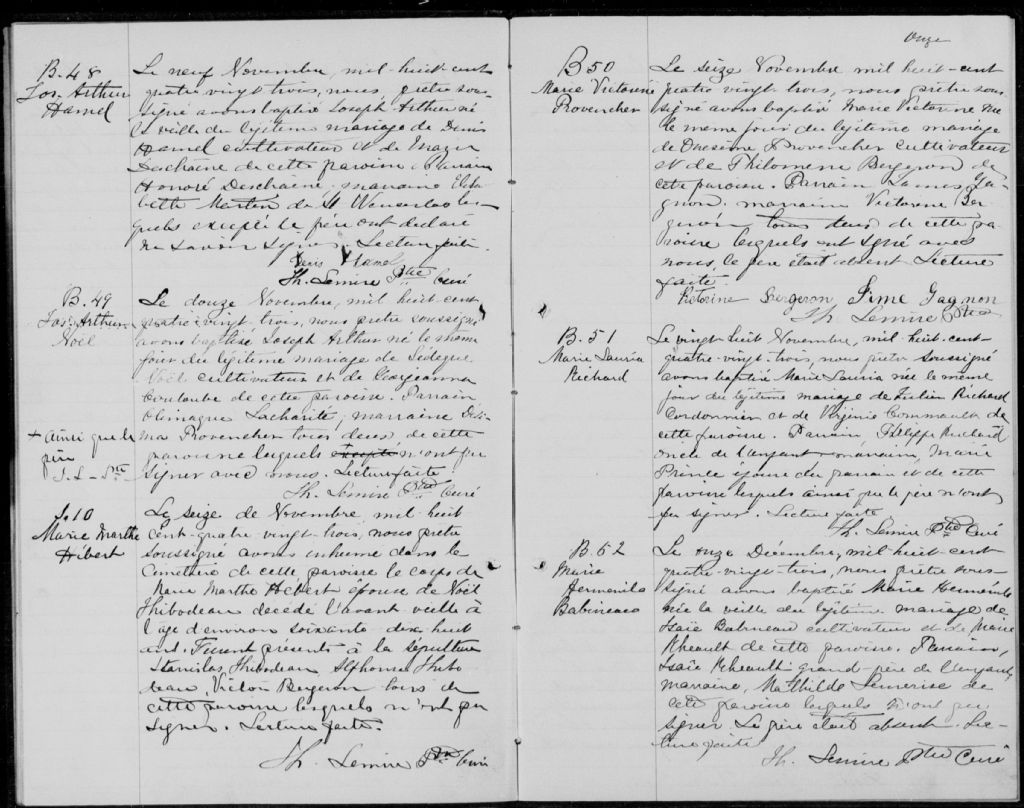 B. 48
Jos. Arthur
Hamel
Le neuf Novembre, mil-huit-cent
quatre-vingt trois, nous, prêtre sous-
signé avons baptisé Joseph Arthur né
la veille du légitime mariage de Denis
Hamel cultivateur et de
Deschaine de cette paroisse. Parrain
Honoré Deschaine, marraine Elisa
beth Martin de St Wenceslas les-
quels excepté le père ont déclaré
ne savoir signer. Lecture faite.
Denis Hamel
Th. Lemire Ptre Curé
B. 49
Jos. Arthur
Noël
Le douze Novembre, mil huit cent
quatre-vingt-trois, nous prêtre soussigné
avons baptisé Joseph Arthur né le même
jour du légitime mariage de
Noël cultivateur et de Georgeanna
Coulombe de cette paroisse. Parrain
Lacharité, marraine
Provencher tous deux de cette
paroisse lesquels excepté n'ont pu
signer avec nous. Lecture faite
+ ainsi que le
père
Th. Lemire Ptre Curé
S. 10
Marie Marthe
Hébert
Le seize de Novembre mil huit
cent-quatre-vingt-trois, nous prêtre
soussigné avons inhumé dans le
cimetière de cette paroisse le corps de
Marie Marthe Hébert épouse de Noël
Thibodeau décédé l'avant veille à
l'âge d'environ soixante-dix-huit
ans. Furent présents à la sépulture
Stanislas Thibodeau Alphonse Thibo
deau, Victor Bergeron tous de
cette paroisse lesquels n'ont pu
signer. Lecture faite.
Th. Lemire Ptre Curé
Onze
B 50
Marie Victorine
Provencher
Le seize Novembre mil huit-cent
quatre vingt-trois, nous prêtre sous
signé avons baptisé Marie Victorine née
le même jour du légitime mariage
de Onésime Provencher cultivateur
et de Philomène Bergeron de
cette paroisse. Parrain James Ga-
gnon, marraine Victorine Ber-
geron tous deux de cette pa-
roisse lesquels ont signé avec
nous, le père était absent. Lecture
faite.
Victorine Bergeron Jime Gagnon
Th. Lemire Ptre
B. 51
Marie Lauria
Richard
Le vingt huit Novembre, mil-huit-cent-
quatre-vingt-trois, nous prêtre soussigné
avons baptisé Marie Lauria née le même
jour du légitime mariage de Julien Richard
Cordonnier et de Virginie Commault de
cette paroisse. Parrain, Philippe Richard
oncle de l'enfant marraine, Marie
Prince épouse du parrain et de cette
paroisse lesquels ainsi que le père n'ont
pu signer. Lecture faite
Th. Lemire Ptre Curé
B. 52
Marie
Hermenile
Babineau
Le onze Décembre, mil-huit-cent
quatre-vingt-trois, nous prêtre sous-
signé avons baptisé Marie Hermenile
née la veille du légitime mariage de
Isaïe Babineau cultivateur et de Marie
Rheault de cette paroisse. Parrain,
Isaïe Rheault grand-père de l'enfant,
marraine, Mathilde Lemerise de
cette paroisse lesquels n'ont pu
signer. Le père était absent. Lec-
ture faite
Th. Lemire Ptre Curé